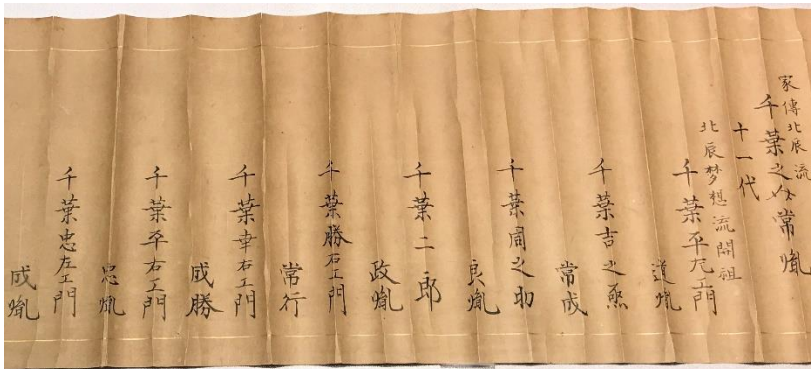 家傳北辰流
千葉之常胤
十一代
北辰梦想流開祖
千葉平左エ門
道胤
千葉吉之烝
常成
千葉周之助
良胤
千葉二郎
政胤
千葉勝右エ門
常行
千葉幸右エ門
成勝
千葉平右エ門
忠胤
千葉忠左エ門
成胤